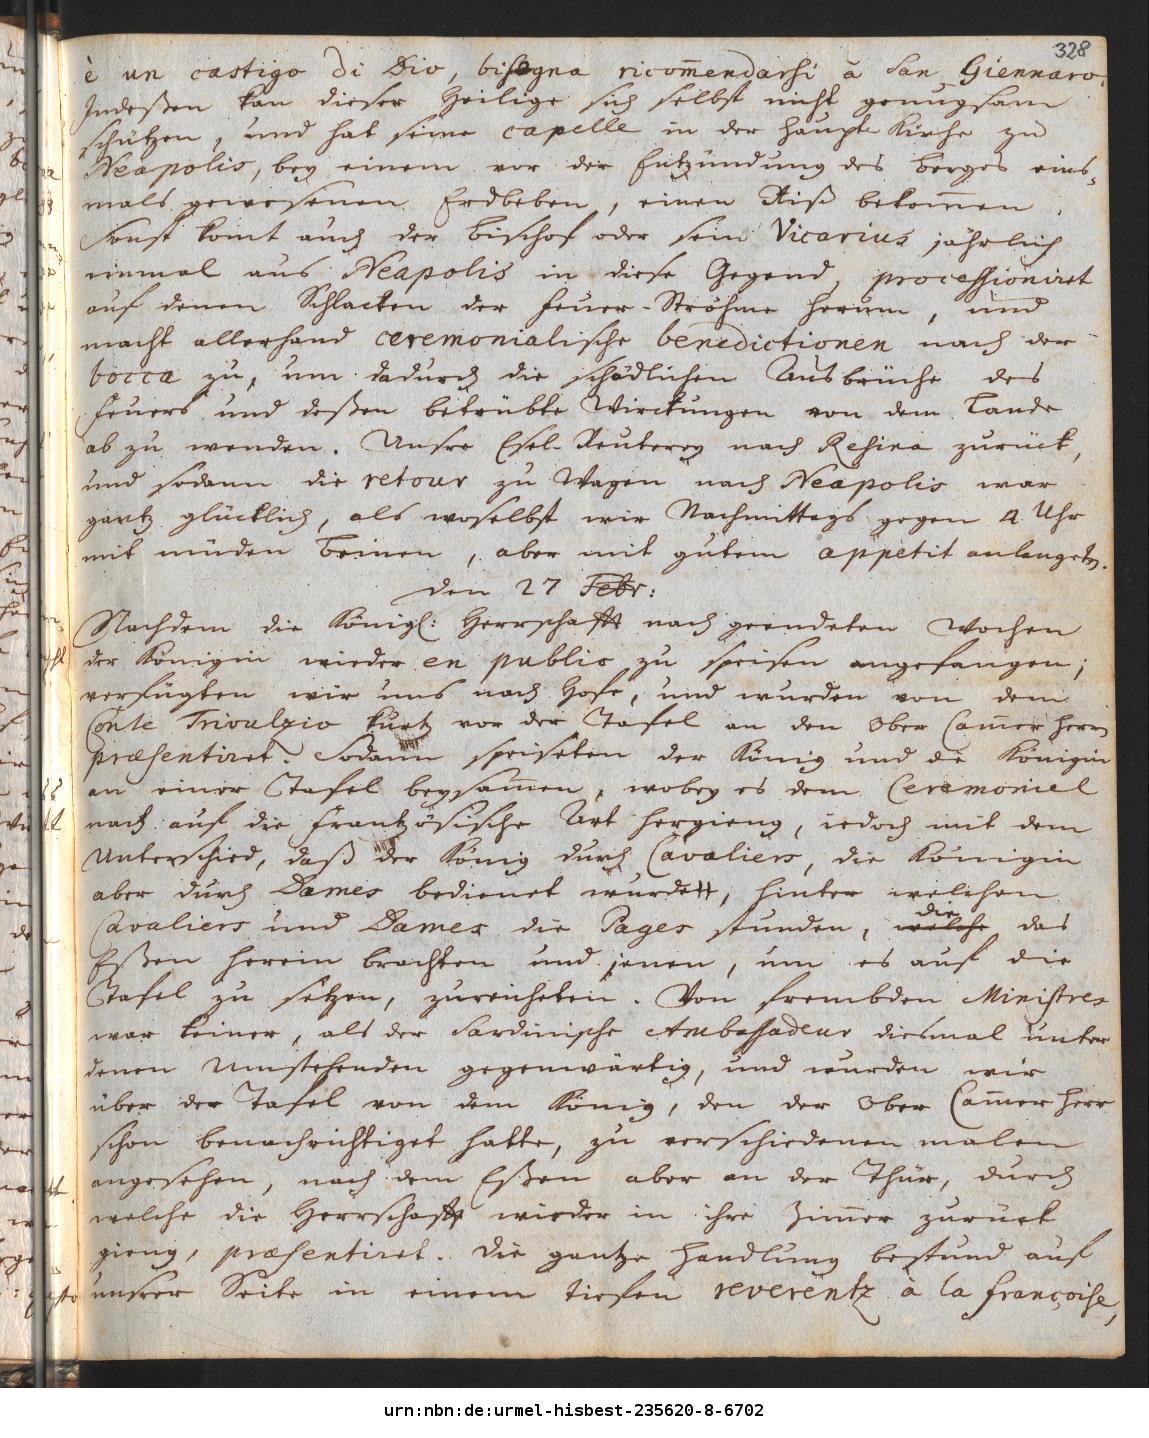 328
è un castigo di Dio, bisogna ricom̅endarsi à San Giennaro.
Indeßen kan dieser Heilige sich selbst nicht genugsam
schützen, und hat seine capelle in der Haupt-Kirche zu
Neapolis, bey einem vor der Entzündung des Berges eins-
mals gewesenen Erdbeben, einen Riß bekom̅en.
Sonst komt auch der Bischof oder sein Vicarius jährlich
einmal aus Neapolis in diese Gegend, processioniret
auf denen Schlacken der Feuer-Ströhme herum, und
macht allerhand ceremonialische benedictionen nach der
bocca zu, um dadurch die schädlichen Ausbrüche des
Feuers und deßen betrübte Wirckungen von dem Lande
ab zu wenden. Unsre Esel-Reuterey nach Resina zurück,
und sodann die retour zu Wagen nach Neapolis war
gantz glücklich, als woselbst wir Nachmittags gegen 4 Uhr
mit müden Beinen, aber mit gutem appetit anlangeten.
den 27 Febr:
Nachdem die Königl: Herrschafft nach geendeten Wochen
der Königin wieder en public zu speisen angefangen;
verfügten wir uns nach Hofe, und wurden von dem
Conte Trivulzio kurtz vor der Tafel an den Ober Cam̅er Herrn
præsentiret. Sodann speiseten der König und die Königin
an einer Tafel beysam̅en, wobey es dem Ceremoniel
nach auf die Frantzösische Art hergieng, iedoch mit dem
Unterschied, daß der König durch Cavaliers, die Königin
aber durch Dames bedienet wurde, hinter welchen
Cavaliers und Dames die Pages stunden, welche die das
Eßen herein brachten und jenen, um es auf die
Tafel zu setzen, zureicheten. Von frembden Ministres
war keiner, als der Sardinische Ambassadeur diesmal unter
denen Umstehenden gegenwärtig, und wurden wir
über der Tafel von dem König, den der Ober Cam̅er Herr
schon benachrichtiget hatte, zu verschiedenen malen
angesehen, nach dem Eßen aber an der Thür, durch
welche die Herrschafft wieder in ihre Zim̅er zurück
gieng, præsentiret. Die gantze Handlung bestund auf
unsrer Seite in einem tiefen reverentz à la françoise,
urn:nbn:de:urmel-hisbest-235620-8-6702